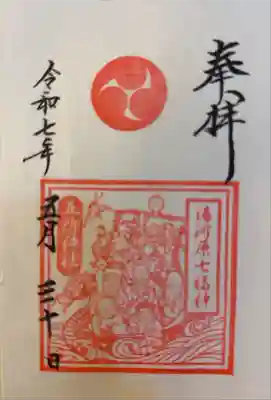 奉拝
湯河原七福神
令和七年 五月 三十日